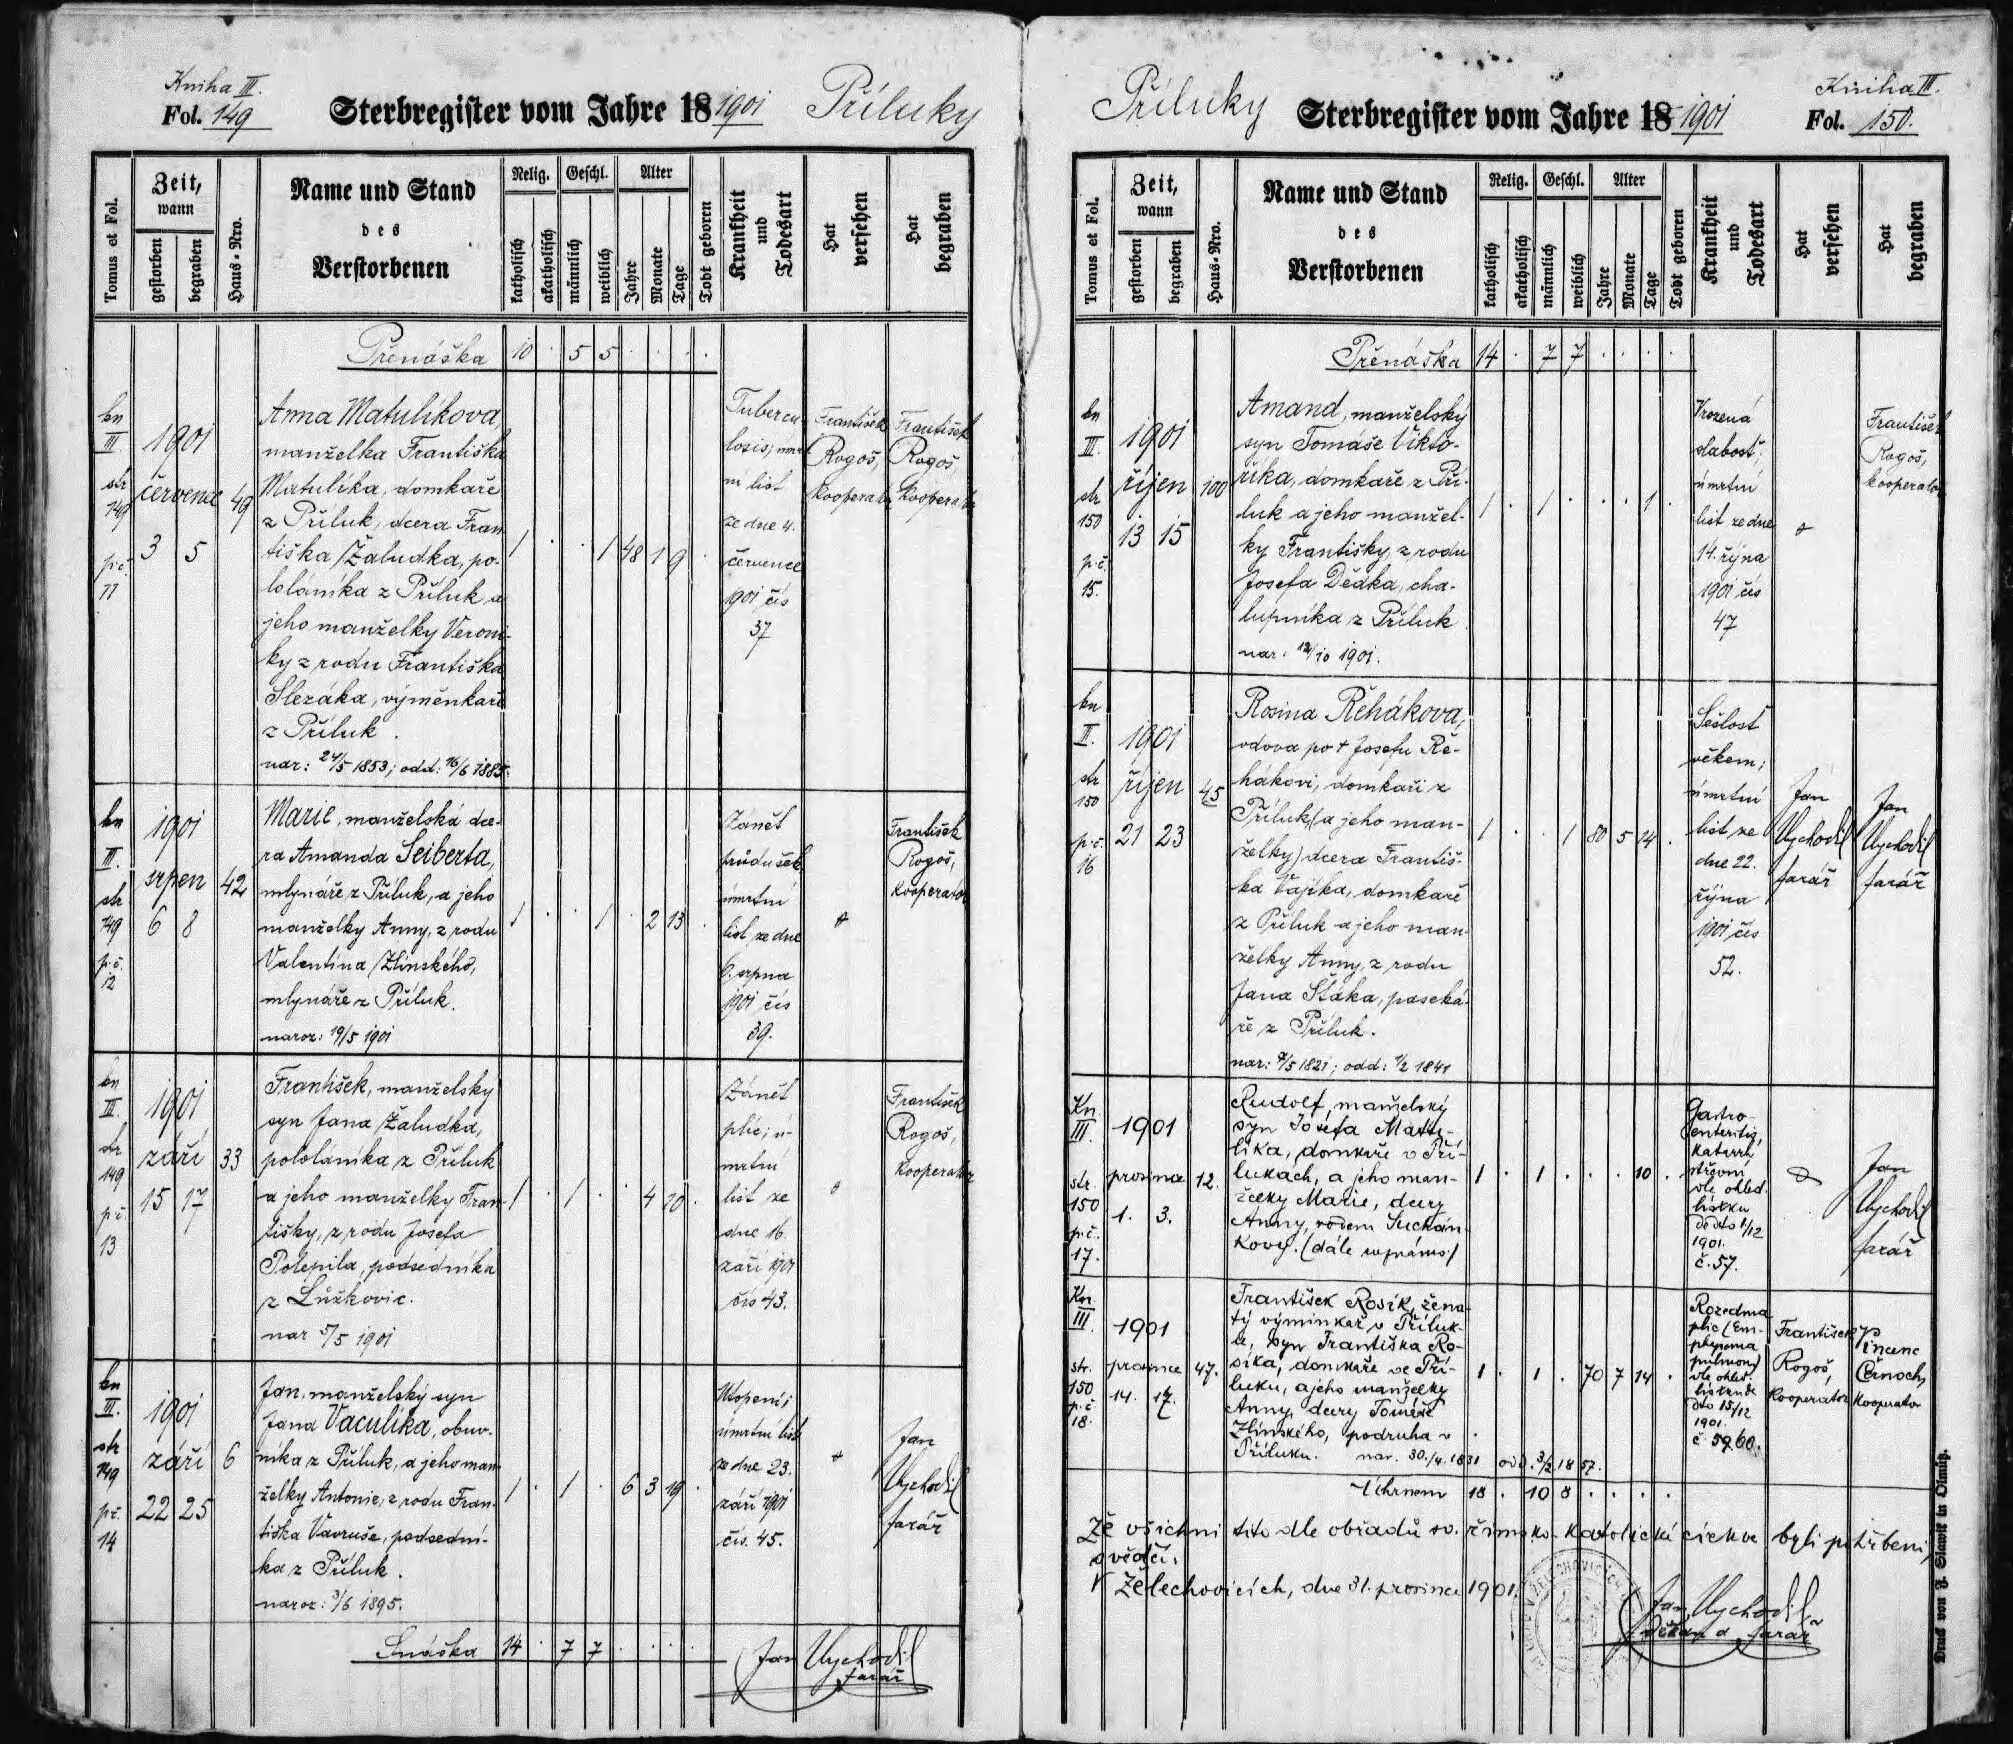 Kniha III.
Fol. 149
Sterbregister vom Jahre 18 1901
Příluky
Tomus et Fol.
Zeit, wann
gestorben
begraben
Haus-Nro.
Name und Stand
des
Verstorbenen
Relig.
katholisch
akatholisch
Geschl.
männlich
weiblich
Alter
Jahre
Monate
Tage
Todt geboren
Krankheit
und
Todesart
Hat
versehen
Hat
begraben
Přenáška 10 . 5 5 . . . .
kn
III
str
149
p.č.
11
1901
července
3 5
49
Anna Matulíkova,
manželka Františka
Matulíka, domkaře
z Příluk, dcera Fran
tiška Žaludka, po-
loláníka z Příluk a
jeho manželky Veroni-
ky z rodu Františka
Slezáka, výměnkaře
z Příluk.
nar: 24/5 1853; odd: 16/6 1885.
1 . . 1 48 1 9 .
Tubercu
losis; úmrt
ní list
ze dne 4.
července
1901 čís
37
František
Rogoš,
Kooperator
František
Rogoš
Kooperator
kn
III.
str
149
p.č.
12
1901
srpen
6 8
42
Marie, manželská dce-
ra Amanda Seiberta,
mlynáře z Příluk, a jeho
manželky Anny, z rodu
Valentina Zlínského,
mlynáře z Příluk.
naroz: 19/5 1901
1 . . 1 . 2 13 .
Zánět
průdušek
úmrtní
list ze dne
6. srpna
1901 čís
39.
František
Rogoš,
Kooperator
kn
III.
str
149
p.č.
13
1901
září
15 17
33
František, manželský
syn Jana Žaludka,
pololáníka z Příluk
a jeho manželky Fran
tišky, z rodu Josefa
Polepila, podsedníka
z Lůžkovic.
nar 5/5 1901
1 . 1 . . 4 10 .
Zánět
plic; ú-
mrtní
list ze
dne 16.
září 1901
čís 43.
František
Rogoš,
Kooperator
kn
III.
str
149
p.č.
14
1901
září
22 25
6
Jan, manželský syn
Jana Vaculíka, obuv-
níka z Příluk, a jeho man
želky Antonie, z rodu Fran-
tiška Vavruše, podsední-
ka z Příluk.
naroz: 3/6 1895.
1 . 1 . 6 3 19 .
Utopení;
úmrtní list
ze dne 23.
září 1901
čís. 45.
Jan
Vychodil
farář
Snáška 14 . 7 7 . . . .
Jan Vychodil
farář
Příluky
Sterbregister vom Jahre 18 1901
Kniha III.
Fol. 150.
Tomus et Fol.
Zeit, wann
gestorben
begraben
Haus-Nro.
Name und Stand
des
Verstorbenen
Relig.
katholisch
akatholisch
Geschl.
männlich
weiblich
Alter
Jahre
Monate
Tage
Todt geboren
Krankheit
und
Todesart
Hat
versehen
Hat
begraben
Přenáška 14 . 7 7 . . . .
kn
III.
str
150
p.č.
15.
1901
říjen
13 15
100
Amand, manželský
syn Tomáše Vikto-
říka, domkaře z Pří-
luk a jeho manžel-
ky Františky, z rodu
Josefa Dědka, cha-
lupníka z Příluk
nar: 12/10 1901.
1 . 1 . . . 1 .
Vrozená
slabost;
úmrtní
list ze dne
14. října
1901 čís
47
František
Rogoš,
kooperator
kn
II.
str
150
p.č.
16
1901
říjen
21 23
45
Rosina Řehákova,
vdova po + Josefu Ře-
hákovi, domkaři z
Příluk, (a jeho man-
želky) dcera Františ-
ka Vajíka, domkaře
z Příluk a jeho man-
želky Anny, z rodu
Jana Sláka, paseká-
ře z Příluk.
nar: 7/5 1821; odd: 1/2 1841
1 . . 1 80 5 14 .
Sešlost
věkem;
úmrtní
list ze
dne 22.
října
1901 čís
52.
Jan
Vychodil
farář
Jan
Vychodil
farář
Kn
III.
str.
150
p.č.
17.
1901
prosince
1. 3.
12.
Rudolf, manželský
syn Josefa Matu-
líka, domkaře v Pří-
lukách, a jeho man-
želky Marie, dcery
Anny, rodem Suchán-
kovy. (dále neznámo)
1 . 1 . . . 10 .
Gastro-
enteritis,
katarrh
střevní
dle ohled.
lístku
deto 1/12
1901.
č. 57.
Jan
Vychodil
farář
Kn.
III.
str.
150
p.č.
18.
1901
prosince
14. 17.
47.
František Rosík, žena-
tý výminkář v Příluk-
u, syn Františka Ro-
síka, domkaře ve Pří-
luku, a jeho manželky
Anny, dcery Tomáše
Zlínského, podruha v
Příluku. nar. 30./4. 1831 odd. 3/2 1857.
1 . 1 . 70 7 14 .
Rozedma
plic (Em-
physema
pulmon)
dle ohled.
lístku de
dto 15/12
1901.
č 59 60.
František
Rogoš,
Kooperator
Vincenc
Černoch,
kooperator
Úhrnem 18 . 10 8 . . . .
Že všichni tito dle obřadů sv. římsko-katolické církve byli pohřbeni,
svědčí:
V Želechovicích, dne 31. prosince 1901.
Jan Vychodil
děkan a farář
Druck von J. Slawik in Olmütz.